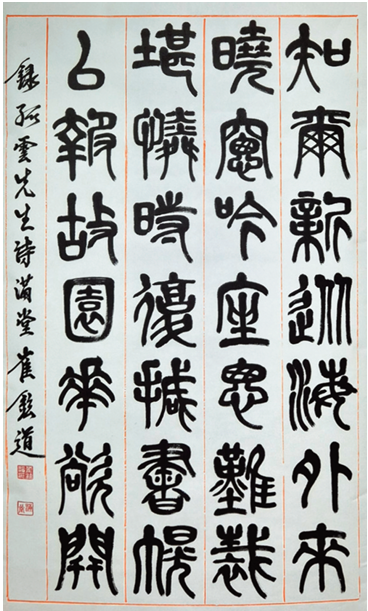 知爾新從海外來
曉窗吟座思難裁
堪憐時復撼書幌
以報故園花欲開
錄孤雲先生詩 滿堂 崔道